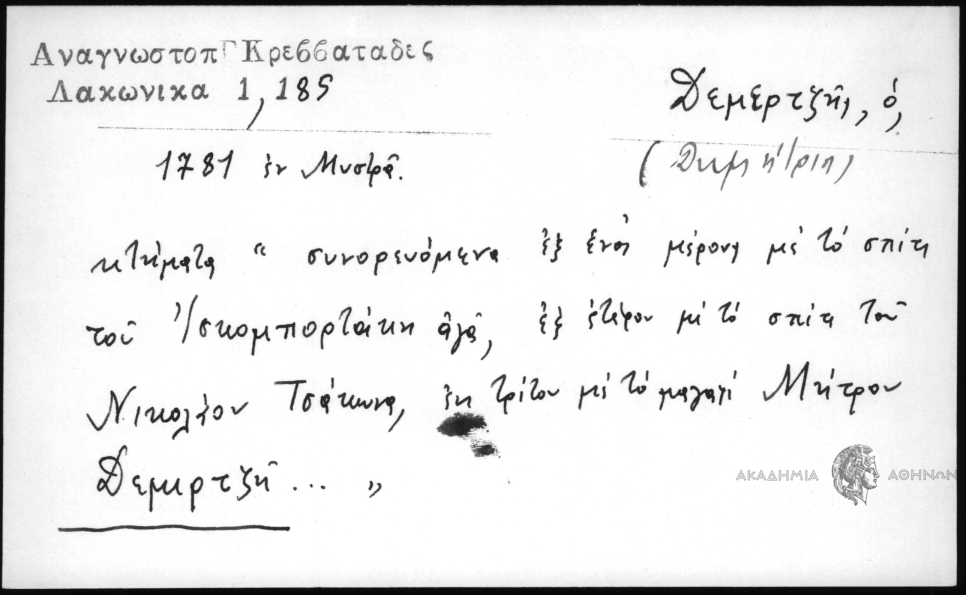 Αναγνωστοπ Γ Κρεββαταδες
Λακωνικα 1, 185
Δεμερτζῆς, ὁ,
(Δημήτρης)
1781 ἐν Μυστρᾷ.
κτήματα " συνορευόμενα ἐξ ἑνὸς μέρους μὲ τὸ σπίτι
τοῦ Ἰσκομπορτάκη ἀγᾶ, ἐξ ἑτέρου μὲ τὸ σπίτι τοῦ
Νικολέου Τσάκωνα, ἐκ τρίτου μὲ τὸ μαγαζὶ Μήτρου
Δεμερτζῆ ... "
ΑΚΑΔΗΜΙΑ ΑΘΗΝΩΝ